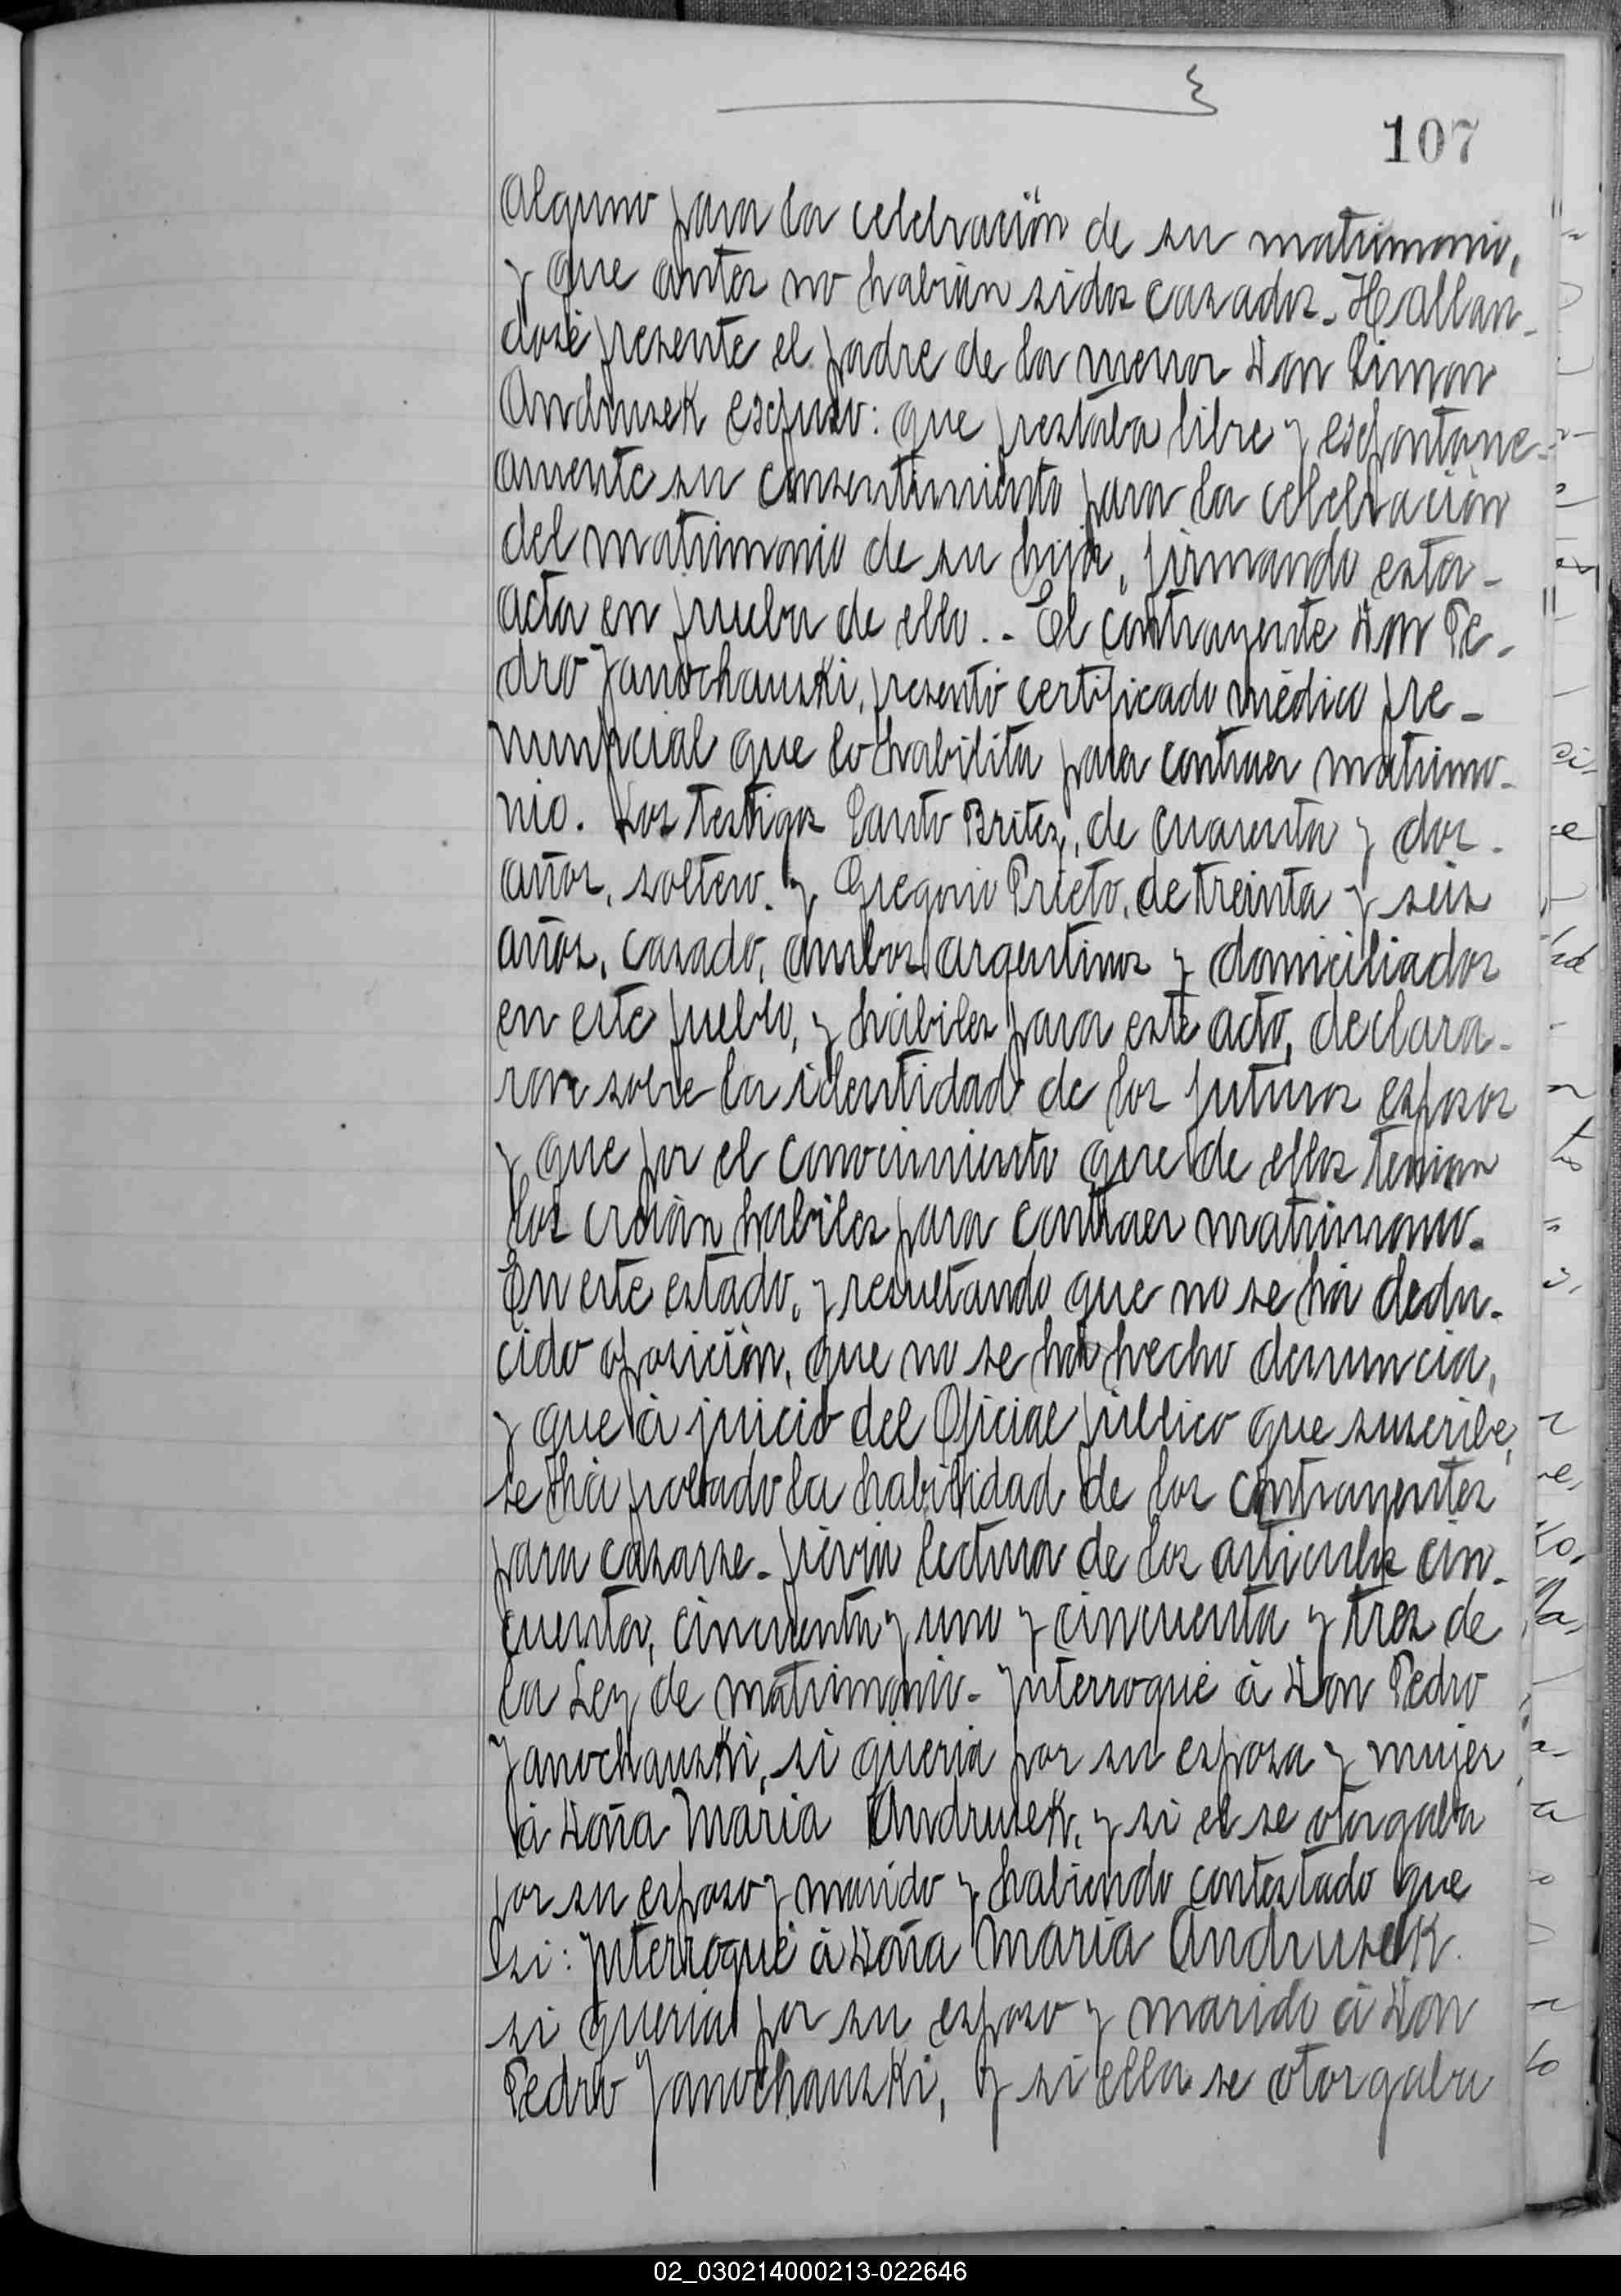 107
Alguno para la celebración de su matrimonio,
y que antes no habian sidos casados. Hallan-
dosé presente el padre de la menor Don Simon
Andrusek expuso: que prestaba libre y espontane-
amente su consentimiento para la celebración
del matrimonio de su hija, firmando esta
acta en prueba de ello. - El contrayente Don Pe-
dro Yanochauski, presentó certificado médico pre-
nunpcial que lo habilita para contraer matrimo-
nio. Los testigos Santo Britez, de cuarenta y dos
años, soltero. y Gregorio Prieto, de treinta y seis
años, casado, ambos argentinos y domiciliados
en este pueblo, y hábiles para este acto, declara-
ron sobre la identidad de los futuros esposos
y que por el conocimiento que de ellos tenian
los creián habiles para contraer matrimonio.
En este estado, y resultando que no se há dedu-
cido oposición, que no se há hecho denuncia,
y que á juicio del Oficial público que suscribe,
se há probado la habilidad de los contrayentes
para casarse. previa lectura de los articulos cin-
cuenta, cincuenta y uno y cincuenta y tres de
la Ley de matrimonio. Ynterroqué á Don Pedro
Yanochauski, si queria por su esposa y mujer
á Doña Maria Andrusek, y si el se otorgaba
por su esposo y marido y habiendo contestado que
si: Ynterroqué á Doña Maria Andrusek.
si queria por su esposo y marido á Don
Pedro Yanochauski, y si ella se otorgaba
02_030214000213-022646